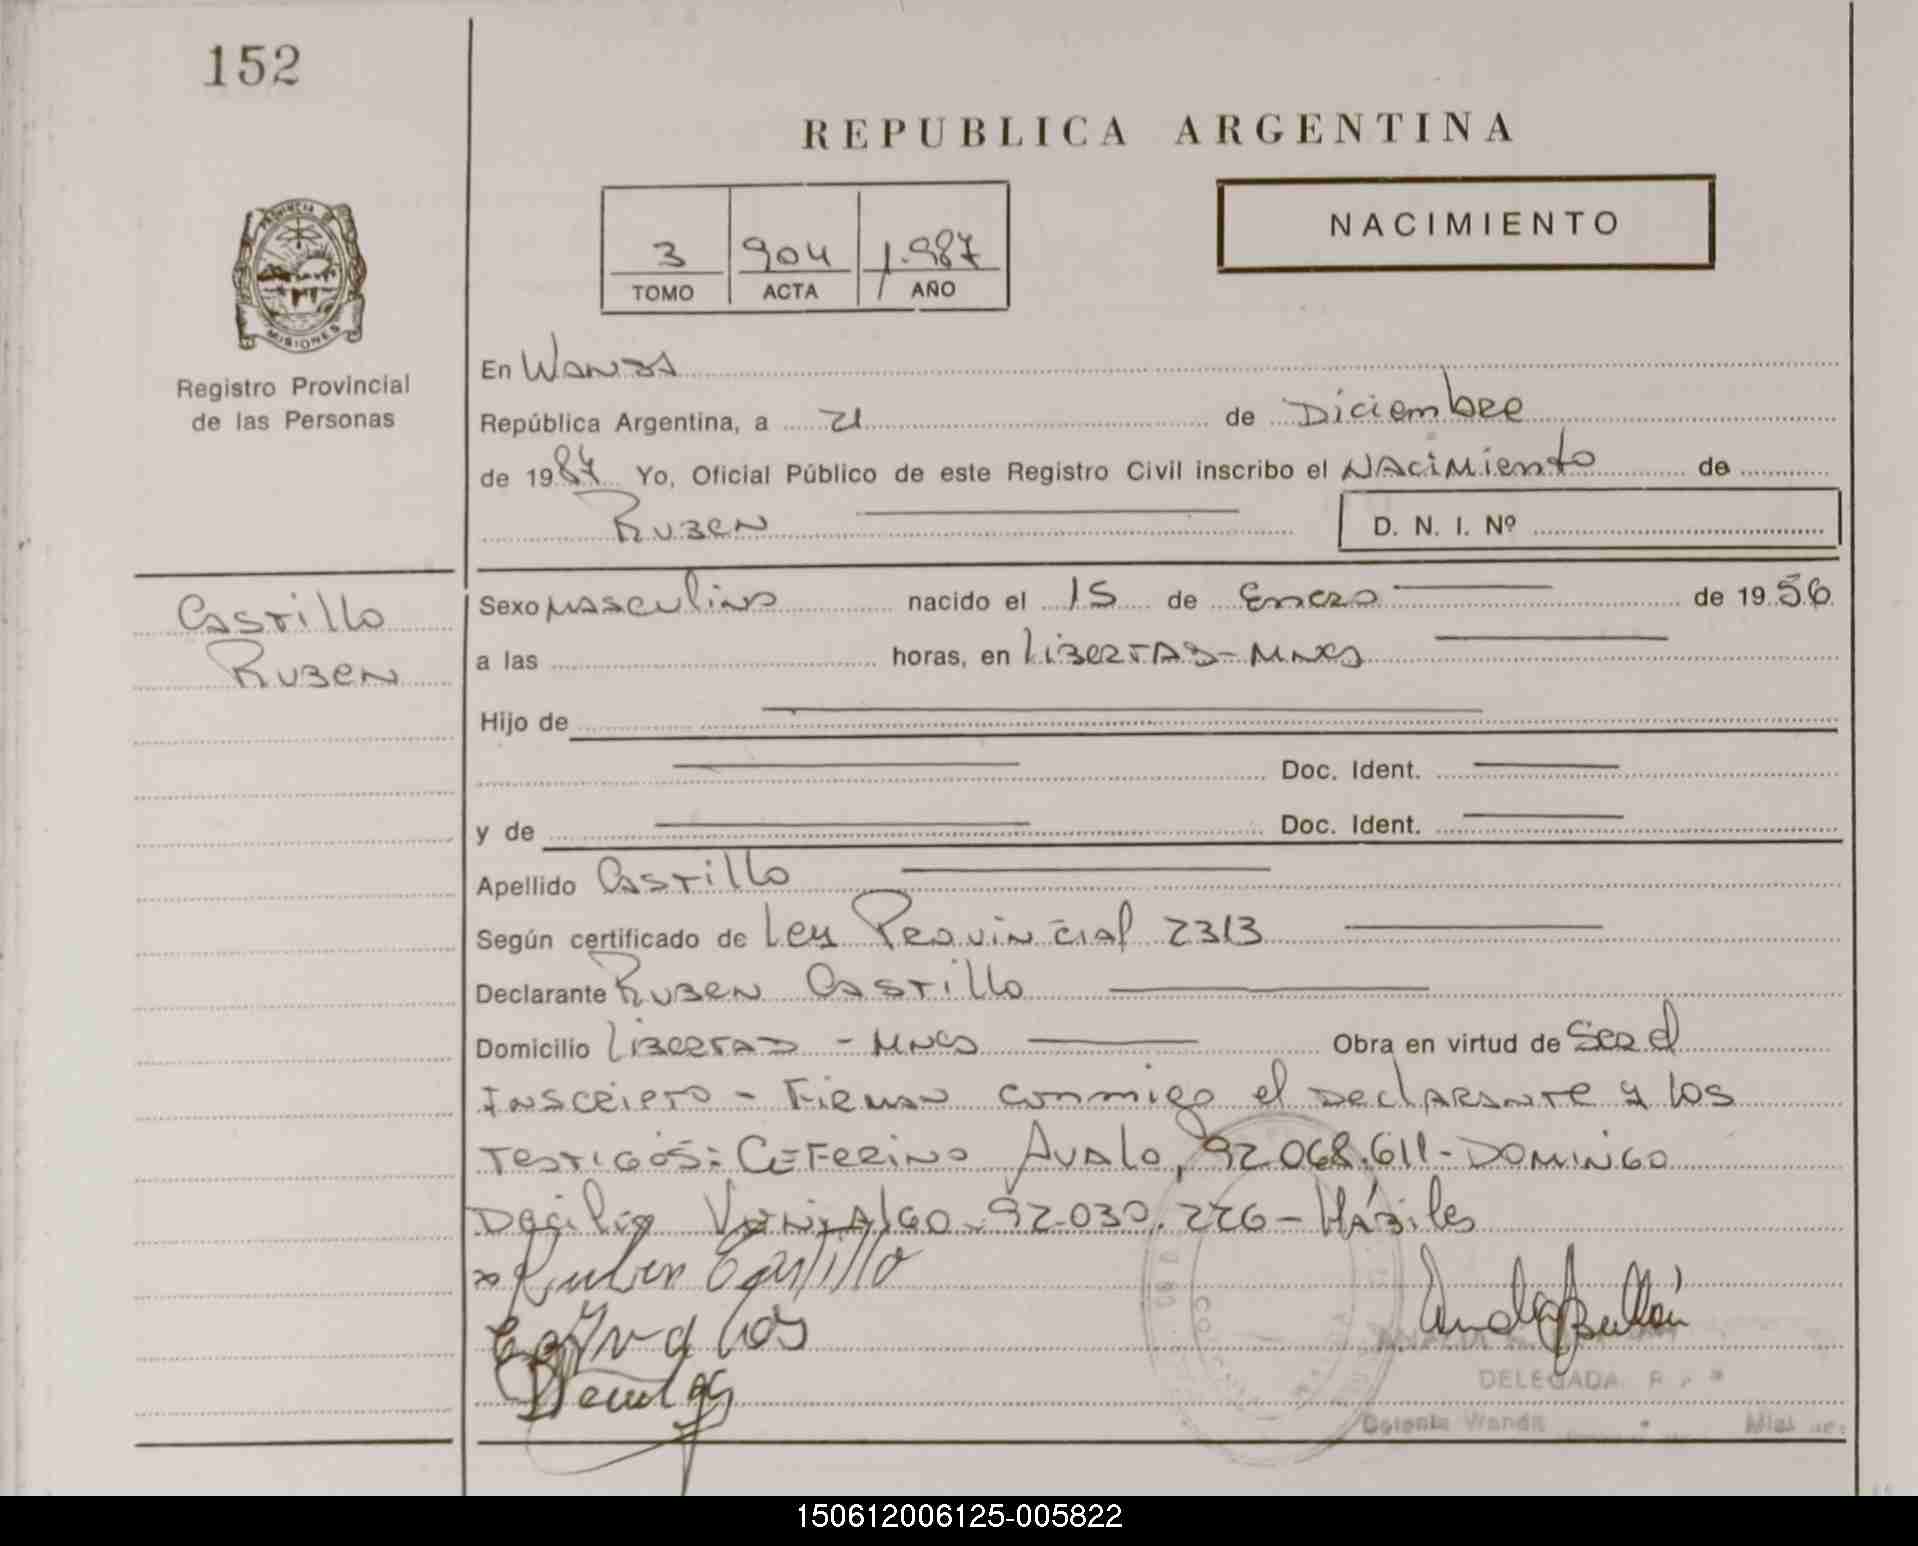 152
REPUBLICA ARGENTINA
PROVINCIA DE
MISIONES
Registro Provincial
de las Personas
3 904 1.987
TOMO ACTA AÑO
NACIMIENTO
En Wanda
República Argentina, a 21 de Diciembre
de 1987 Yo, Oficial Público de este Registro Civil inscribo el Nacimiento de
Ruben D. N. I. Nº
Castillo
Ruben
Sexo masculino nacido el 15 de Enero de 1956
a las horas, en Libertad - Mnes
Hijo de
Doc. Ident.
y de Doc. Ident.
Apellido Castillo
Según certificado de Ley Provincial 2313
Declarante Ruben Castillo
Domicilio Libertad - Mnes Obra en virtud de
Inscripto - Firman conmigo el Declarante y los
Testigos: Ceferino Avalo, 92.068.611 - Domingo
92.030.226 - Hábiles
Ruben Castillo
DELEGADA
Colonia Wanda
150612006125-005822